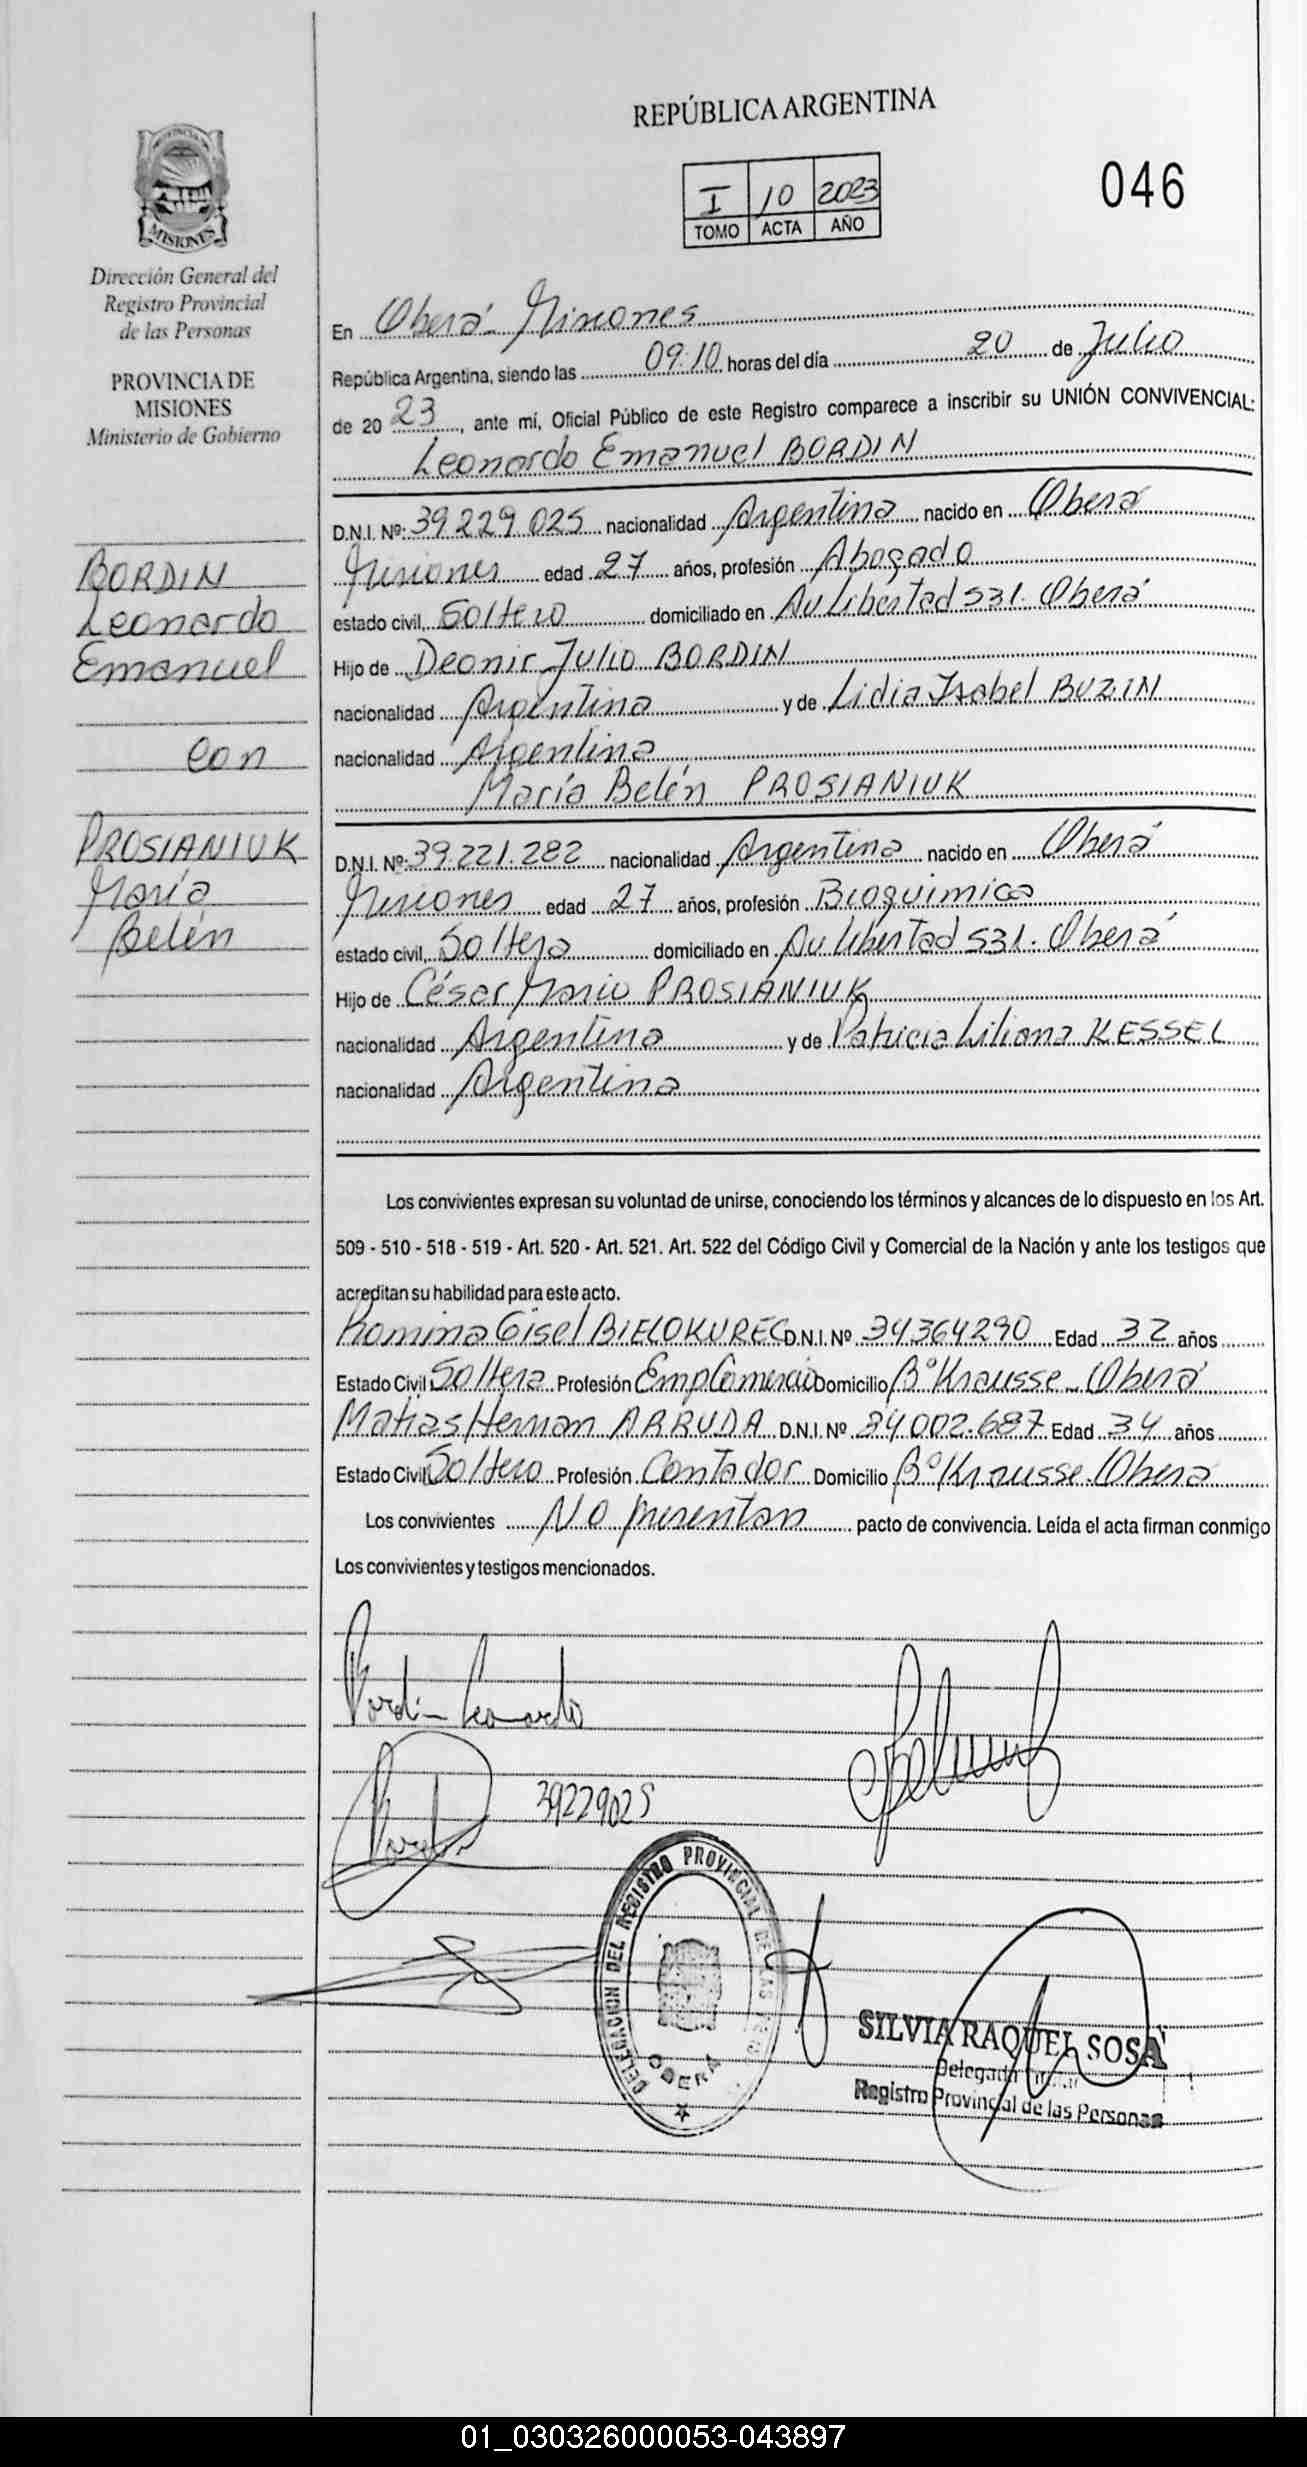 REPÚBLICA ARGENTINA
I 10 2023
TOMO ACTA AÑO
046
MISIONES
Dirección General del
Registro Provincial
de las Personas
PROVINCIA DE
MISIONES
Ministerio de Gobierno
BORDIN
Leonardo
Emanuel
con
PROSIANIUK
María
Belén
En Oberá - Misiones
República Argentina, siendo las 09:10 horas del día 20 de Julio
de 20 23, ante mí, Oficial Público de este Registro comparece a inscribir su UNIÓN CONVIVENCIAL:
Leonardo Emanuel BORDIN
D.N.I. Nº: 39.229.025 nacionalidad Argentina nacido en Oberá
Misiones edad 27 años, profesión Abogado
estado civil, Soltero domiciliado en Av Libertad 531. Oberá
Hijo de Deonir Julio BORDIN
nacionalidad Argentina y de Lidia Isabel BUZIN
nacionalidad Argentina
María Belén PROSIANIUK
D.N.I. Nº: 39.221.282 nacionalidad Argentina nacido en Oberá
Misiones edad 27 años, profesión Bioquimica
estado civil, Soltera domiciliado en Av Libertad 531. Oberá
Hijo de César Mario PROSIANIUK
nacionalidad Argentina y de Patricia Liliana KESSEL
nacionalidad Argentina
Los convivientes expresan su voluntad de unirse, conociendo los términos y alcances de lo dispuesto en los Art.
509 - 510 - 518 - 519 - Art. 520 - Art. 521. Art. 522 del Código Civil y Comercial de la Nación y ante los testigos que
acreditan su habilidad para este acto.
Romina Gisel BIELOKUREC D.N.I. Nº 34364290 Edad 32 años
Estado Civil Soltera Profesión Emp Comercio Domicilio Bº Krausse - Oberá
Matias Hernan ARRUDA D.N.I. Nº 34.002.687 Edad 34 años
Estado Civil Soltero Profesión Contador Domicilio Bº Krausse. Oberá
Los convivientes No presentan pacto de convivencia. Leída el acta firman conmigo
Los convivientes y testigos mencionados.
Bordin Leonardo
39229025
DELEGACION DEL REGISTRO PROVINCIAL DE LAS
OBERA
SILVIA RAQUEL SOSA
Delegada
Registro Provincial de las Personas
01_030326000053-043897